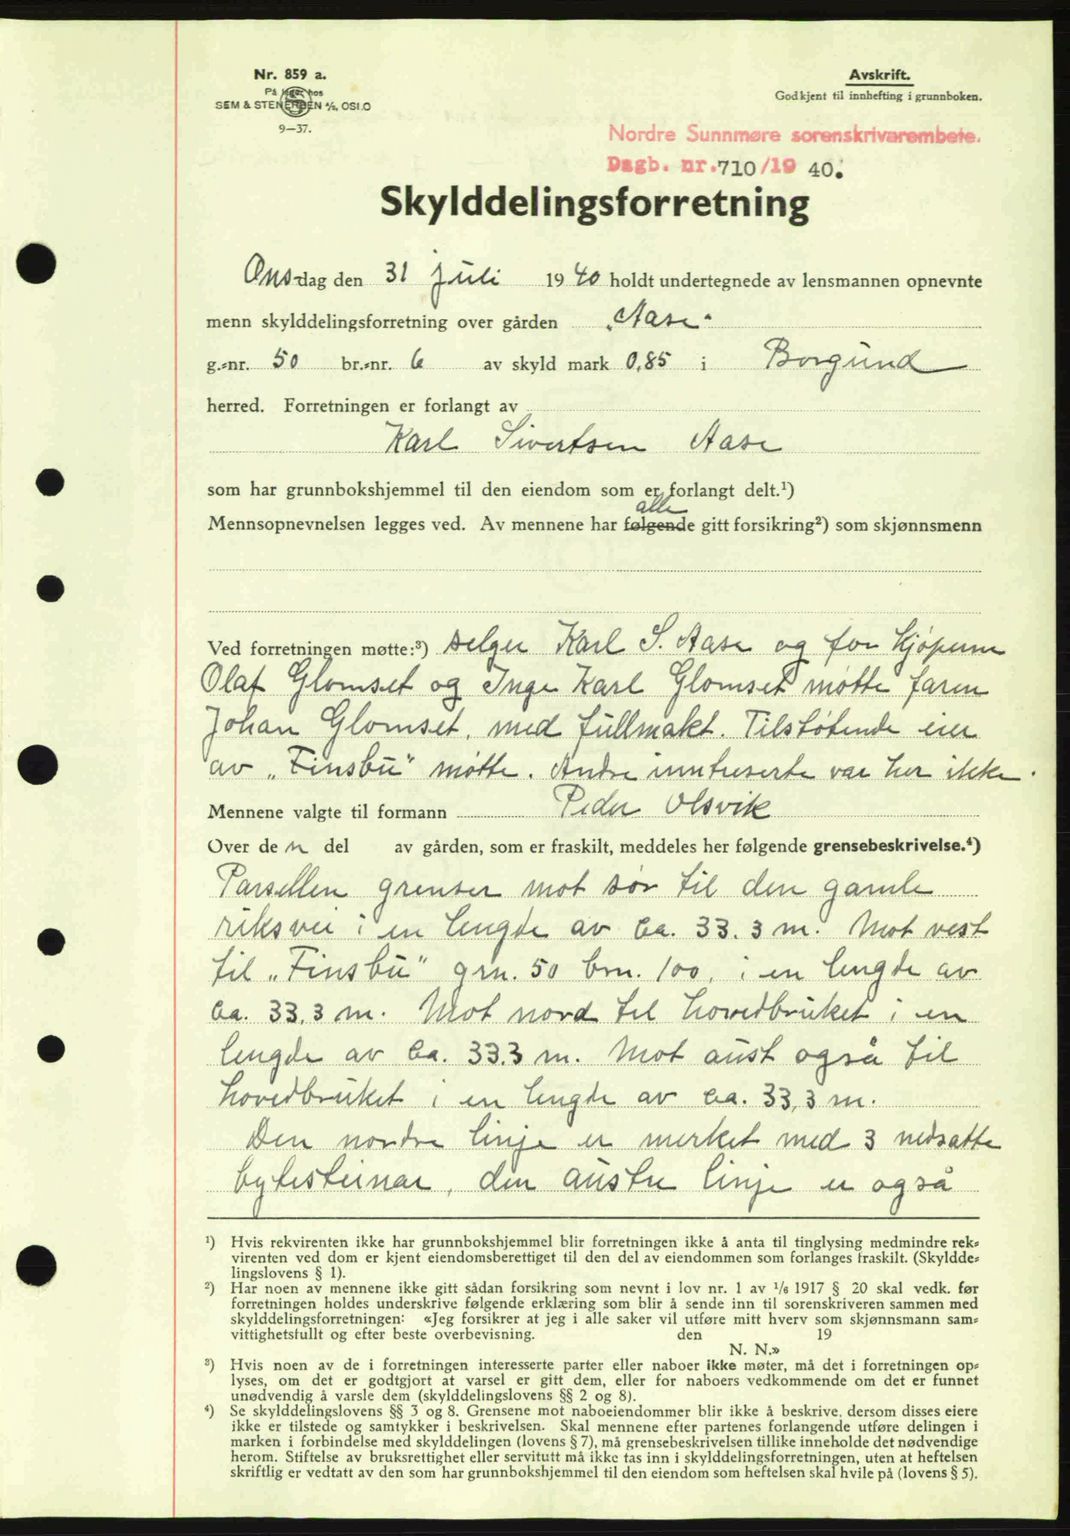 Nr. 859 a.
På lager hos
SEM & STENERSEN A/S, OSLO
9—37.
Avskrift.
Godkjent til innhefting i grunnboken.
Nordre Sunnmøre sorenskrivarembete.
Dagb. nr. 710/19 40.
Skylddelingsforretning
Onsdag den 31 juli 1940 holdt undertegnede av lensmannen opnevnte
menn skylddelingsforretning over gården „Aase“
g.-nr. 50 br.-nr. 6 av skyld mark 0,85 i Borgund
herred. Forretningen er forlangt av
Karl Sivertsen Aase
som har grunnbokshjemmel til den eiendom som er forlangt delt.¹)
alle
Mennsopnevnelsen legges ved. Av mennene har følgende gitt forsikring²) som skjønnsmenn
Ved forretningen møtte:³) selger Karl S. Aase og for kjøperne
Olaf Glomset og Inge Karl Glomset møtte faren
Johan Glomset, med fullmakt. Tilstøtende eier
av „Finsbu“ møtte. Andre innteresserte var her ikke.
Mennene valgte til formann Peder Olsvik
Over den del av gården, som er fraskilt, meddeles her følgende grensebeskrivelse.⁴)
Parsellen grenser mot sør til den gamle
riksvei i en lengde av ca. 33.3 m. Mot vest
til „Finsbu“ grn. 50 brn. 100, i en lengde av
ca. 33,3 m. Mot nord til hovedbruket i en
lengde av ca. 33.3 m. Mot aust også til
hovedbruket i en lengde av ca. 33,3 m.
Den nordre linje er merket med 3 nedsatte
bytesteinar, den austre linje er også
¹) Hvis rekvirenten ikke har grunnbokshjemmel blir forretningen ikke å anta til tinglysing medmindre rek-
virenten ved dom er kjent eiendomsberettiget til den del av eiendommen som forlanges fraskilt. (Skyldde-
lingslovens § 1).
²) Har noen av mennene ikke gitt sådan forsikring som nevnt i lov nr. 1 av 1/6 1917 § 20 skal vedk. før
forretningen holdes underskrive følgende erklæring som blir å sende inn til sorenskriveren sammen med
skylddelingsforretningen: «Jeg forsikrer at jeg i alle saker vil utføre mitt hverv som skjønnsmann sam-
vittighetsfullt og efter beste overbevisning. den 19
N. N.»
³) Hvis noen av de i forretningen interesserte parter eller naboer ikke møter, må det i forretningen op-
lyses, om det er godtgjort at varsel er gitt dem, eller for naboers vedkommende om det er funnet
unødvendig å varsle dem (skylddelingslovens §§ 2 og 8).
⁴) Se skylddelingslovens §§ 3 og 8. Grensene mot naboeiendommer blir ikke å beskrive, dersom disses eiere
ikke er tilstede og samtykker i beskrivelsen. Skal mennene efter partenes forlangende utføre delingen i
marken i forbindelse med skylddelingen (lovens § 7), må grensebeskrivelsen tillike inneholde det nødvendige
herom. Stiftelse av bruksrettighet eller servitutt må ikke tas inn i skylddelingsforretningen, uten at heftelsen
skriftlig er vedtatt av den som har grunnbokshjemmel til den eiendom som heftelsen skal hvile på (lovens § 5).